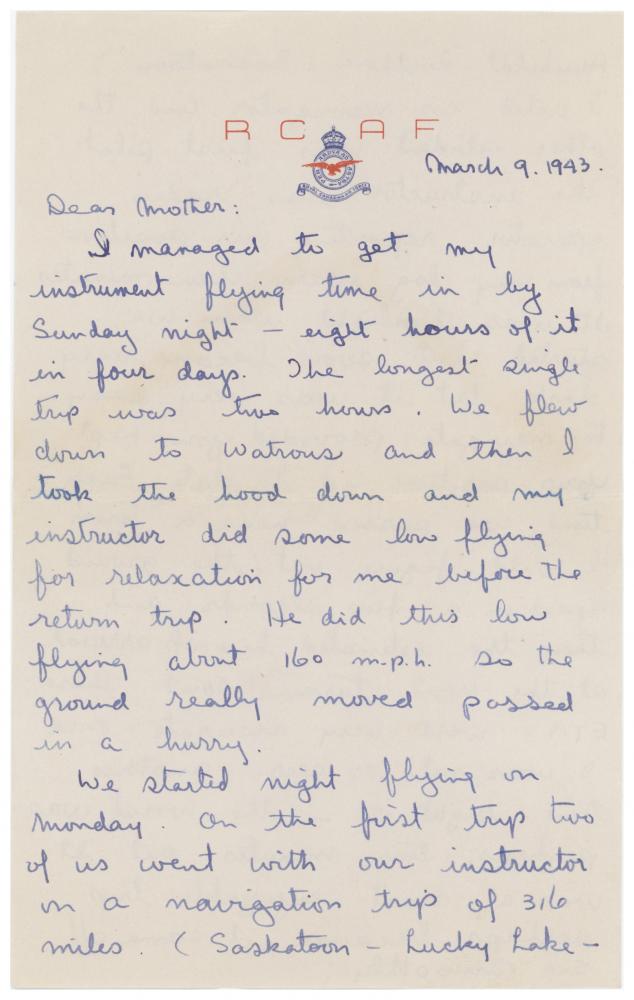 RCAF
PER ARDUA AD ASTRA
ROYAL CANADIAN AIR FORCE
March 9. 1943.
Dear Mother:
I managed to get my
instrument flying time in by
Sunday night – eight hours of it
in four days. The longest single
trip was two hours. We flew
down to Watrous and then I
took the hood down and my
instructor did some low flying
for relaxation for me before the
return trip. He did this low
flying about 160 m.p.h. so the
ground really moved passed
in a hurry.
We started night flying on
Monday. On the first trip two
of us went with our instructor
on a navigation trip of 316
miles. (Saskatoon – Lucky Lake –